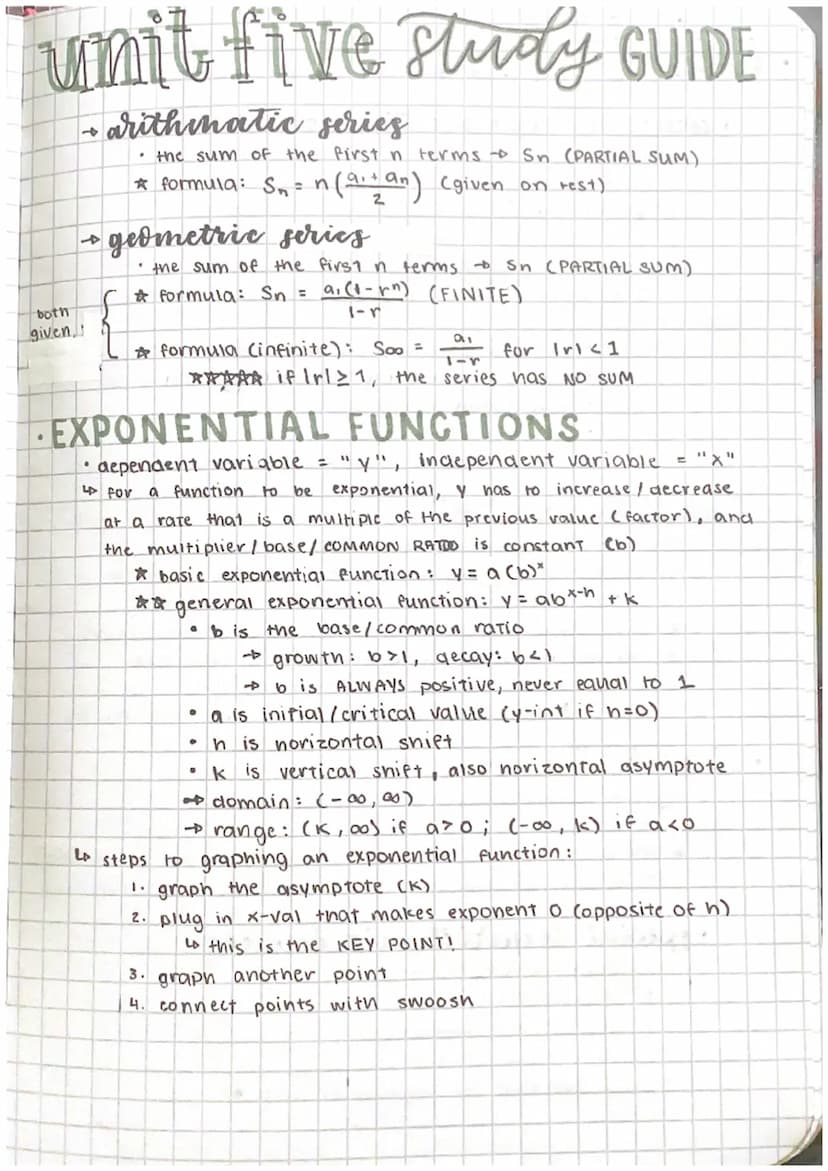 unit five study GUIDE
→ arithmatic series
• the sum of the first n terms → Sn (PARTIAL SUM)
☆ formula: Sn = n(a₁ + an / 2) (given on test)
→ geometric series
• the sum of the first n terms → Sn (PARTIAL SUM)
both given!
☆ formula: Sn = a₁(1-rⁿ) / 1-r (FINITE)
☆ formula (infinite): S∞ = a₁ / 1-r for |r| < 1
☆☆☆☆☆ if |r| ≥ 1, the series has NO SUM
• EXPONENTIAL FUNCTIONS
• dependent variable = "y", independent variable = "x"
↳ for a function to be exponential, y has to increase/decrease
at a rate that is a multiple of the previous value (factor), and
the multiplier/base/COMMON RATIO is constant (b)
☆ basic exponential function: y = a(b)ˣ
☆☆ general exponential function: y = abˣ⁻ʰ + k
• b is the base/common ratio
→ growth: b>1, decay: b<1
→ b is ALWAYS positive, never equal to 1
• a is initial/critical value (y-int if h=0)
• h is horizontal shift
• k is vertical shift, also horizontal asymptote
→ domain: (-∞, ∞)
→ range: (k, ∞) if a>0; (-∞, k) if a<0
↳ steps to graphing an exponential function:
1. graph the asymptote (k)
2. plug in x-val that makes exponent 0 (opposite of h)
↳ this is the KEY POINT!
3. graph another point
4. connect points with swoosh